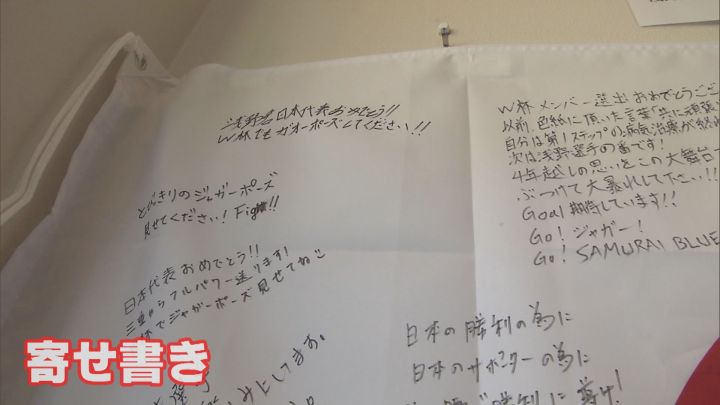 浅野君日本代表おめでとう!!
W杯でもガオーポーズしてください!!
とびきりのジャガーポーズ
見せてください! Fight!!
日本代表おめでとう!!
三重からフルパワー送ります!
杯でジャガーポーズ見せてね
みにしてます。
W杯メンバー選出おめでとうご
以前、色紙に頂いた言葉「共に頑張
自分は第1ステップの病気治療が終
次は浅野選手の番です!
4年越しの思いをこの大舞台
ぶつけて大暴れして下さい!!
Goal期待しています!!
Go! ジャガー!
Go! SAMURAI BLUE
日本の勝利の為に
日本のサポーターの為に
勝利に導け!
寄せ書き